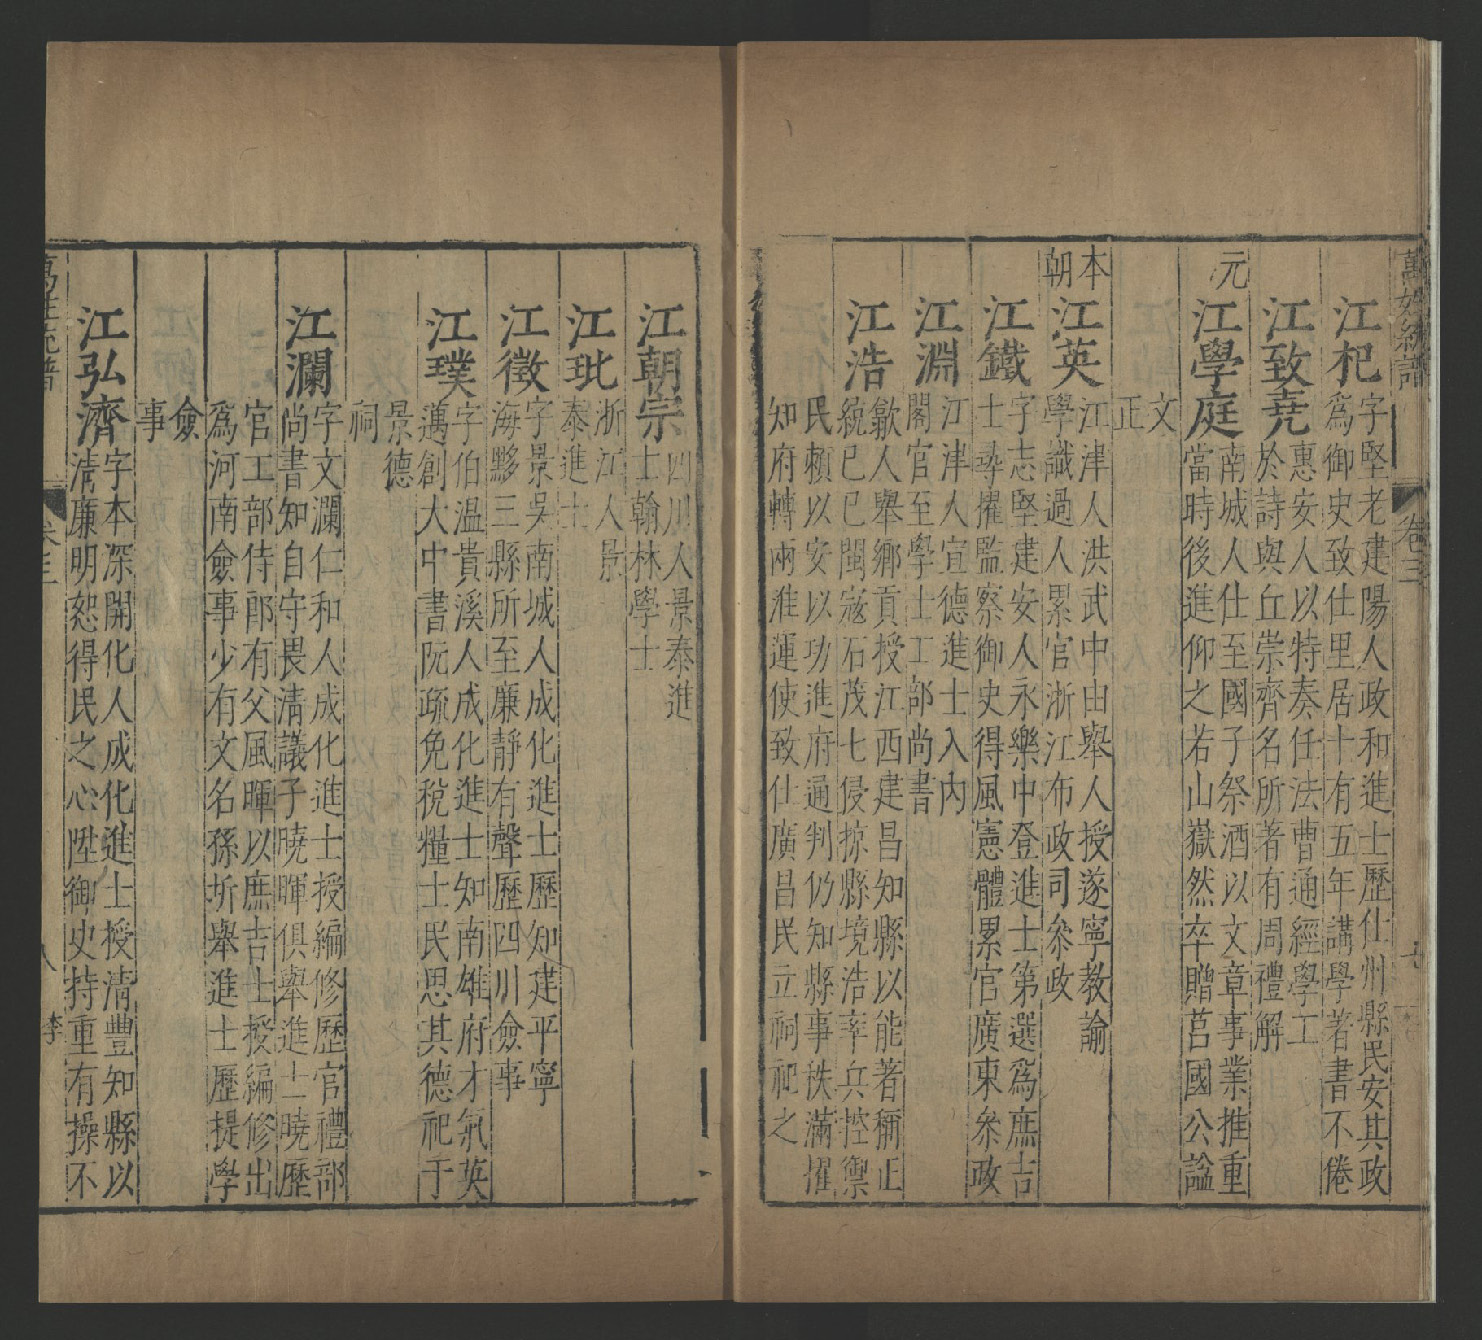 萬姓統譜 卷三 七
江杞 字堅老建陽人政和進士歷仕州縣民安其政
爲御史致仕里居十有五年講學著書不倦
江致堯 惠安人以特奏任法曹通經學工
於詩與丘崇齊名所著有周禮解
元 江學庭 南城人仕至國子祭酒以文章事業推重
當時後進仰之若山嶽然卒贈莒國公諡
文
正
本朝 江英 江津人洪武中由舉人授遂寧教諭
學識過人累官浙江布政司叅政
江鐵 字志堅建安人永樂中登進士第選爲庶吉
士尋擢監察御史得風憲體累官廣東叅政
江淵 江津人宣德進士入內
閣官至學士工部尚書
江浩 歙人舉鄉貢授江西建昌知縣以能著稱正
統已巳閩寇石茂七侵掠縣境浩率兵控禦
民賴以安以功進府通判仍知縣事秩滿擢
知府轉兩淮運使致仕廣昌民立祠祀之
江朝宗 四川人景泰進
士翰林學士
江玭 浙江人景
泰進士
江徵 字景吳南城人成化進士歷知建平寧
海黟三縣所至廉靜有聲歷四川僉事
江璞 字伯温貴溪人成化進士知南雄府才氣英
邁創大中書阮疏免稅糧士民思其德祀于
景德
祠
江瀾 字文瀾仁和人成化進士授編修歷官禮部
尚書知自守畏清議子曉暉俱舉進士曉歷
官工部侍郎有父風暉以庶吉士授編修出
爲河南僉事少有文名孫圻舉進士歷提學
僉
事
江弘濟 字本深開化人成化進士授清豐知縣以
清廉明恕得民之心陞御史持重有操不